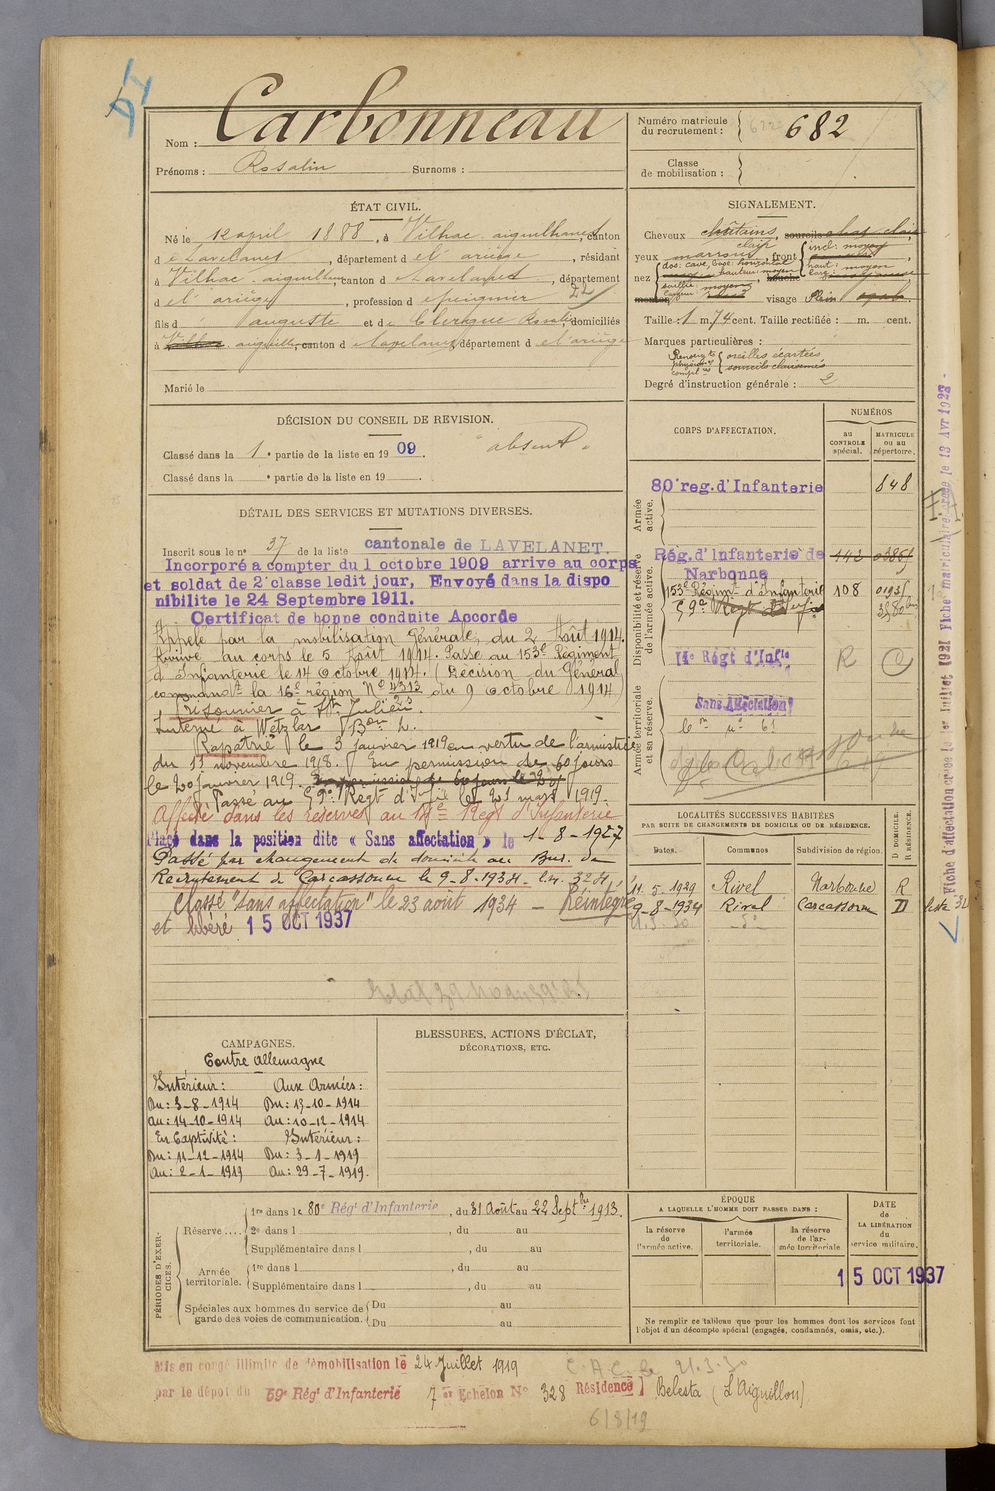 54
Nom : Carbonneau
Prénoms : Rosalin Surnoms :
Numéro matricule du recrutement : 682
Classe de mobilisation :
ÉTAT CIVIL.
Né le 12 april 1888, à Vilhac-aiguilhanes, canton
de Lavelanet, département de l'ariège, résidant
à Vilhac-aiguilhanes, canton de Lavelanet, département
de l'ariège, profession de peigneur 22
fils d auguste et de Clergue Rosalie, domiciliés
à Vilhac-aiguilh, canton de Lavelanet, département de l'ariège
Marié le
SIGNALEMENT.
Cheveux châtains, sourcils chat clair
yeux marrons clair, front incl: moyen
haut: moyen
nez dos: cave, base: horizontal
hauteur: moyen
saillie moyenne
visage Plein
Taille : 1 m. 74 cent. Taille rectifiée : m. cent.
Marques particulières :
Renseigts physion. complres oreilles écartées
sourcils clairsemés
Degré d'instruction générale : 2
DÉCISION DU CONSEIL DE REVISION.
Classé dans la 1e partie de la liste en 1909. "absent"
Classé dans la e partie de la liste en 19 .
DÉTAIL DES SERVICES ET MUTATIONS DIVERSES.
Inscrit sous le n° 37 de la liste cantonale de LAVELANET.
Incorporé a compter du 1 octobre 1909 arrive au corps
et soldat de 2e classe ledit jour, Envoyé dans la dispo
nibilite le 24 Septembre 1911.
Certificat de bonne conduite Accorde
Appelé par la mobilisation Générale, du 2 Août 1914.
Arrivé au corps le 5 Août 1914. Passé au 153e Régiment
d'Infanterie le 14 Octobre 1914. (Décision du Général
commandt la 16e région N° 4313 du 9 Octobre 1914)
Prisonnier à St Julien.
Interné à Wetzlar Bon 2.
Rapatrié le 3 Janvier 1919 en vertu de l'armistice
du 11 novembre 1918. En permission de 60 jours
le 20 Janvier 1919. En permission de 60 jours le 20
Passé au 59e Régt d'Infie le 21 mars 1919.
Affecté dans les réserves au 14e Regt d'Infanterie
Placé dans la position dite « Sans affectation » le 1-8-1927
Passé par changement de domicile au Bur. de
Recrutement de Carcassonne le 9-8-1934. l.n. 3284,
Classé "sans affectation" le 23 août 1934 – Réintégré
et libéré 15 OCT 1937
CORPS D'AFFECTATION.
NUMÉROS
AU CONTROLE spécial.
MATRICULE OU AU répertoire.
Armée active.
80e reg. d'Infanterie 848
Disponibilité et réserve de l'armée active.
Rég. d'Infanterie de Narbonne 142
153e Régimt d'Infanterie 108
59e Régt d'Infie
14e Régt d'Infie R
Armée territoriale et sa réserve.
Sans Affectation
Carcassonne
LOCALITÉS SUCCESSIVES HABITÉES
PAR SUITE DE CHANGEMENTS DE DOMICILE OU DE RÉSIDENCE.
Dates. Communes Subdivision de région. D DOMICILE. R RÉSIDENCE.
11-5-1929 Rivel Narbonne R
9-8-1934 Rivel Carcassonne D
21-3-30
Fiche d'affectation créée le 1er Juillet 1921 Fiche matriculaire créée le 13 Avr 1922
CAMPAGNES.
Contre Allemagne
Intérieur : Aux Armées :
Du : 3-8-1914 Du : 15-10-1914
Au : 14-10-1914 Au : 10-12-1914
En Captivité : Intérieur :
Du : 11-12-1914 Du : 3-1-1919
Au : 2-1-1919 Au : 29-7-1919.
BLESSURES, ACTIONS D'ÉCLAT,
DÉCORATIONS, ETC.
PÉRIODES D'EXERCICES.
Réserve .... 1re dans le 80e Régt d'Infanterie, du 31 Août au 22 Septbre 1913.
2e dans l , du au
Supplémentaire dans l , du au
Armée territoriale. 1re dans l , du au
Supplémentaire dans l , du au
Spéciales aux hommes du service de garde des voies de communication. Du au
Du au
ÉPOQUE
A LAQUELLE L'HOMME DOIT PASSER DANS :
la réserve de l'armée active.
l'armée territoriale.
la réserve de l'armée territoriale
DATE de LA LIBÉRATION du service militaire.
15 OCT 1937
Ne remplir ce tableau que pour les hommes dont les services font
l'objet d'un décompte spécial (engagés, condamnés, omis, etc.).
Mis en congé illimité de démobilisation le 24 Juillet 1919
par le dépôt du 59e Régt d'Infanterie 7e Echelon N° 328 Résidence Belesta (L'Aiguillon)
21.3.30
6/8/19